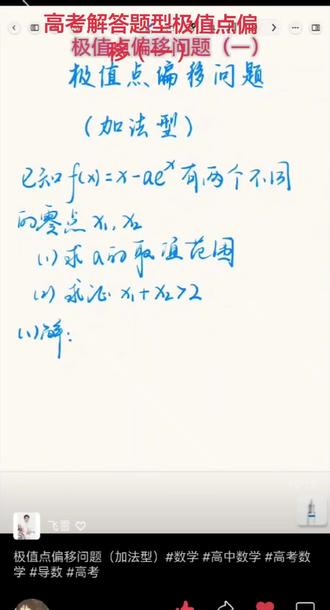 高考解答题型极值点偏
移（一）
极值点偏移问题（一）
极值点偏移问题
（加法型）
已知 f(x)=x-ae^x 有两个不同
的零点 x₁, x₂
(1) 求 a 的取值范围
(2) 求证 x₁+x₂>2
(1) 解：
飞雪
极值点偏移问题（加法型）#数学 #高中数学 #高考数
学 #导数 #高考